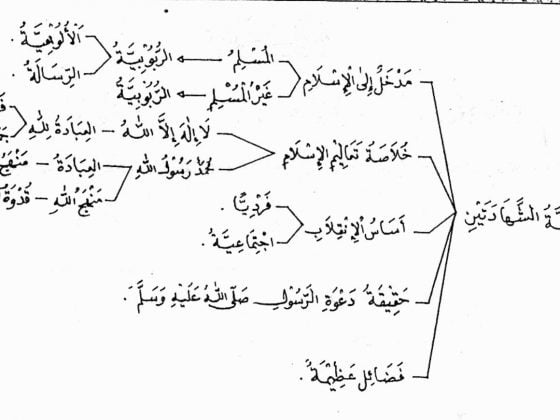 ـة الشَّهَادَتَيْنِ
مَدْخَلٌ إِلَى الْإِسْلَامِ
الْمُسْلِمُ
الرُّبُوْبِيَّةُ
الْأُلُوْهِيَّةُ .
الرِّسَالَةُ .
غَيْرُ الْمُسْلِمِ
الرُّبُوْبِيَّةُ
خُلَاصَةُ تَعَالِيْمِ الْإِسْلَامِ
لَا إِلٰهَ إِلَّا اللهُ – الْعِبَادَةُ لِلّٰهِ
مُحَمَّدٌ رَسُوْلُ اللهِ
الْعِبَادَةُ – مَنْهَجُ
مَنْهَجُ اللهِ – قُدْوَةُ
أَسَاسُ الْإِنْقِلَابِ
فَرْدِيًّا .
اجْتِمَاعِيَّةُ .
حَقِيْقَةُ دَعْوَةِ الرَّسُوْلِ صَلَّى اللهُ عَلَيْهِ وَسَلَّمَ .
فَضَائِلُ عَظِيْمَةٌ .